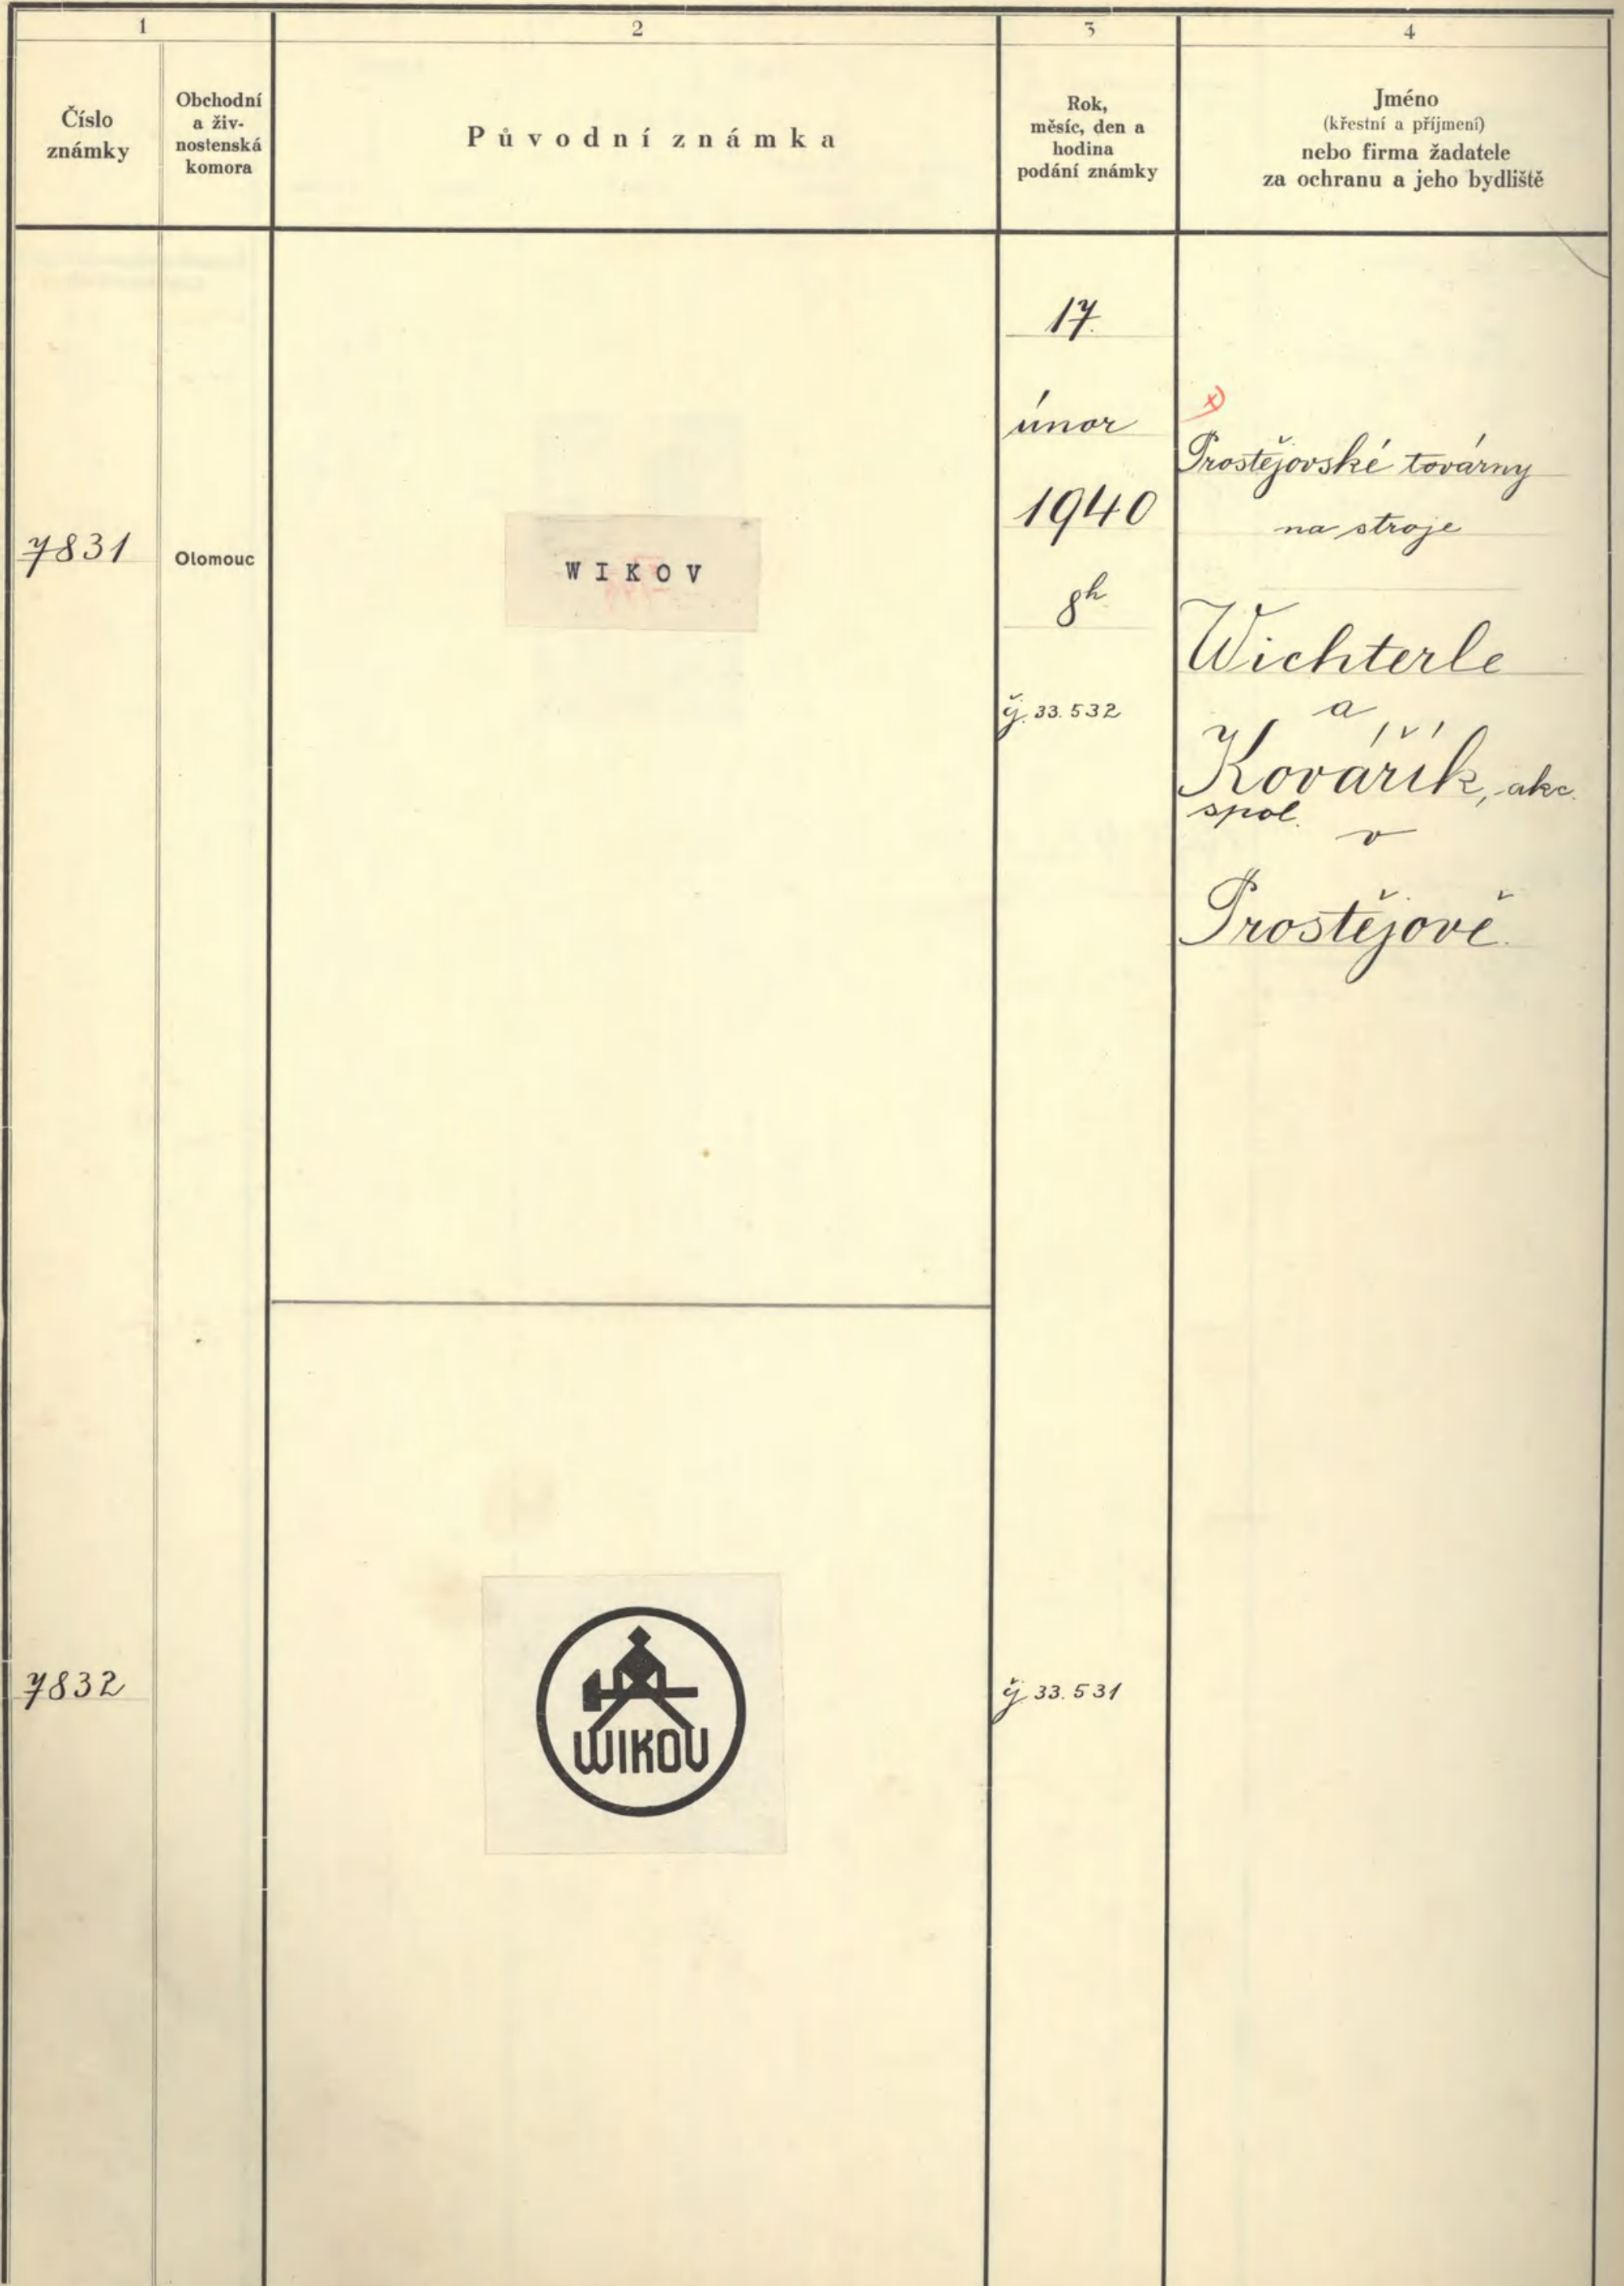 1
2
3
4
Číslo
známky
Obchodní
a živ-
nostenská
komora
Původní známka
Rok,
měsíc, den a
hodina
podání známky
Jméno
(křestní a příjmení)
nebo firma žadatele
za ochranu a jeho bydliště
7831
Olomouc
WIKOV
17.
únor
1940
8h
čj. 33.532
x)
Prostějovské továrny
na stroje
Wichterle
a
Kovářík, akc.
spol.
v
Prostějově.
7832
WIKOV
čj. 33.531